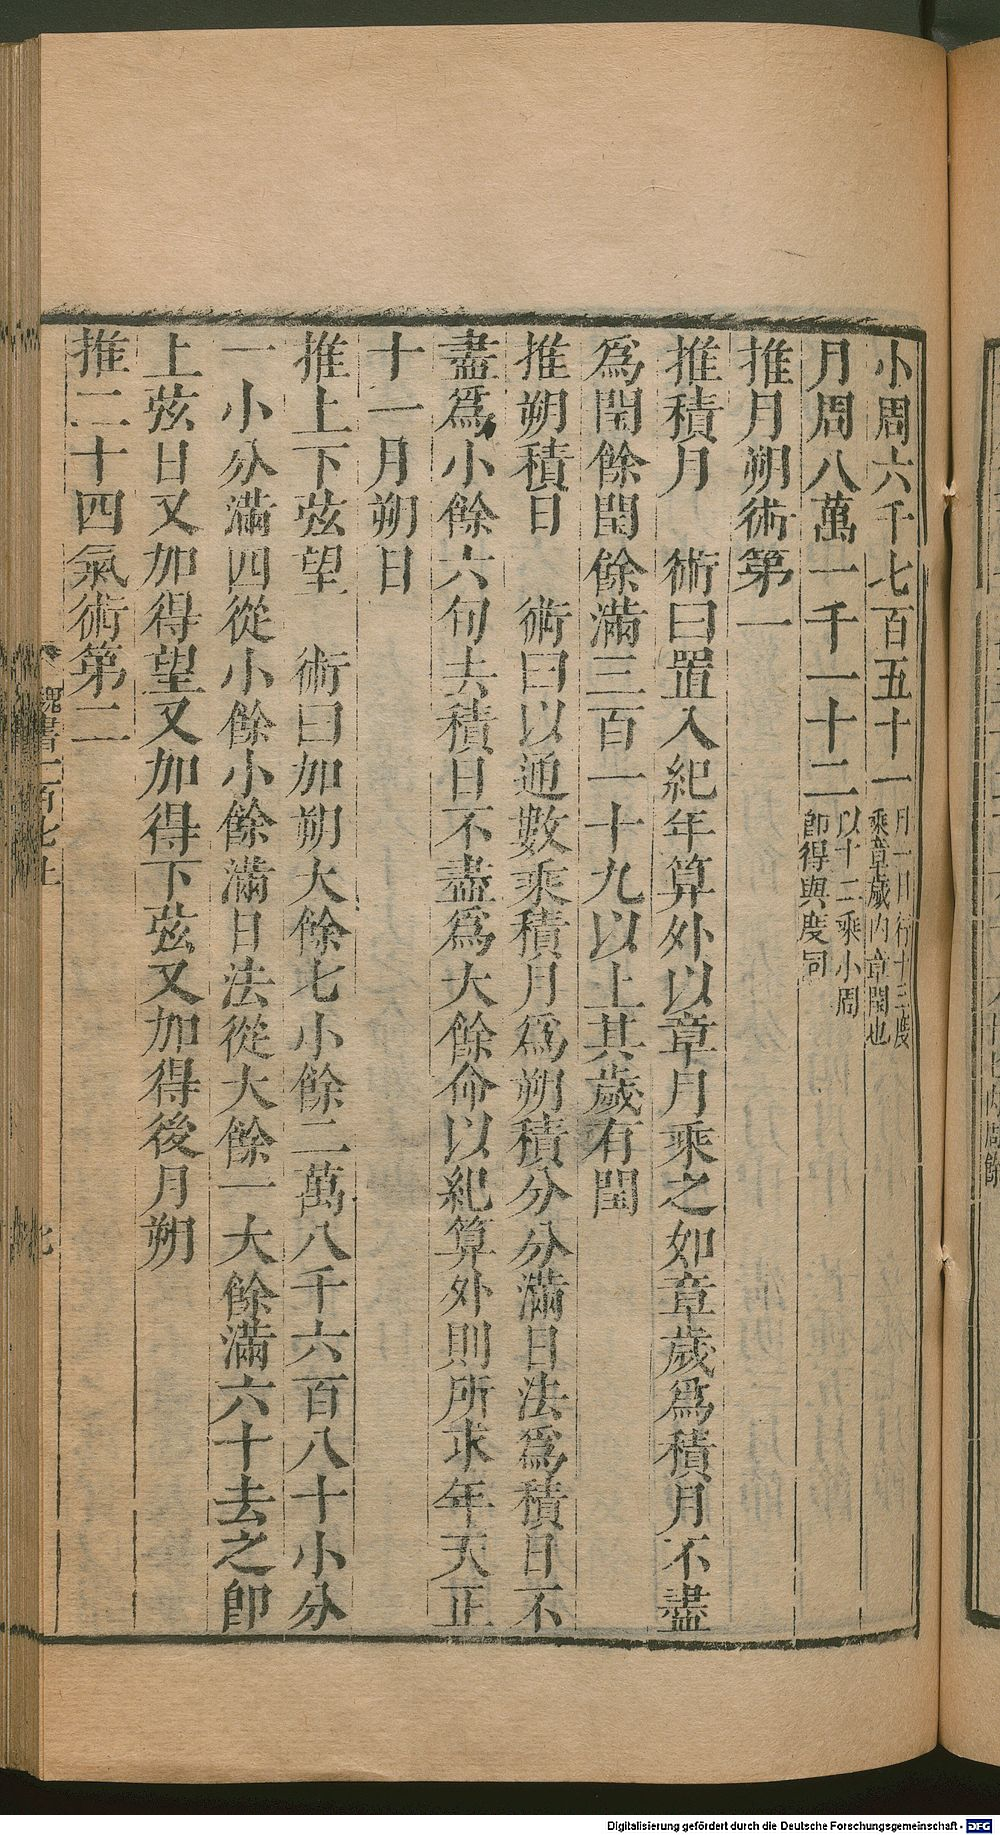 小周六千七百五十一月一日行十三度乘章歲內章閏也
月周八萬一千一十二以十二乘小周卽得與度同
推月朔術第一
推積月　術曰置入紀年算外以章月乘之如章歲爲積月不盡
爲閏餘閏餘滿三百一十九以上其歲有閏
推朔積日　術曰以通數乘積月爲朔積分分滿日法爲積日不
盡爲小餘六旬去積日不盡爲大餘命以紀算外則所求年天正
十一月朔日
推上下弦望　術曰加朔大餘七小餘二萬八千六百八十小分
一小分滿四從小餘小餘滿日法從大餘一大餘滿六十去之卽
上弦日又加得望又加得下弦又加得後月朔
推二十四氣術第二
魏書一百七上
Digitalisierung gefördert durch die Deutsche Forschungsgemeinschaft - DFG